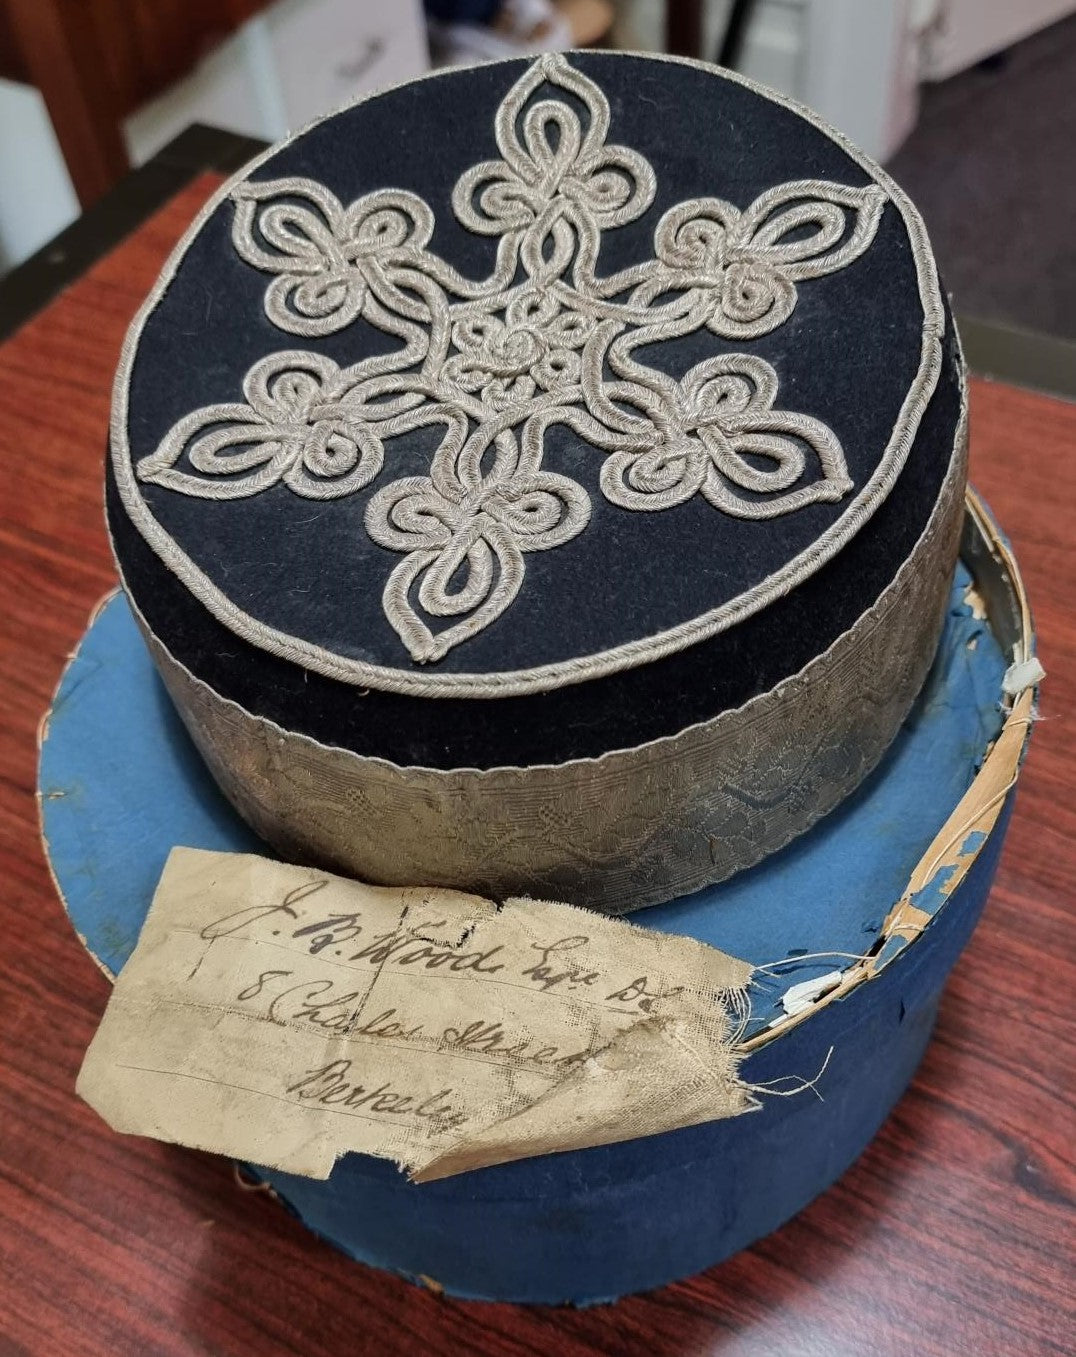 J. B. Wood. Esqre DL
8 Charles Street
Berkeley